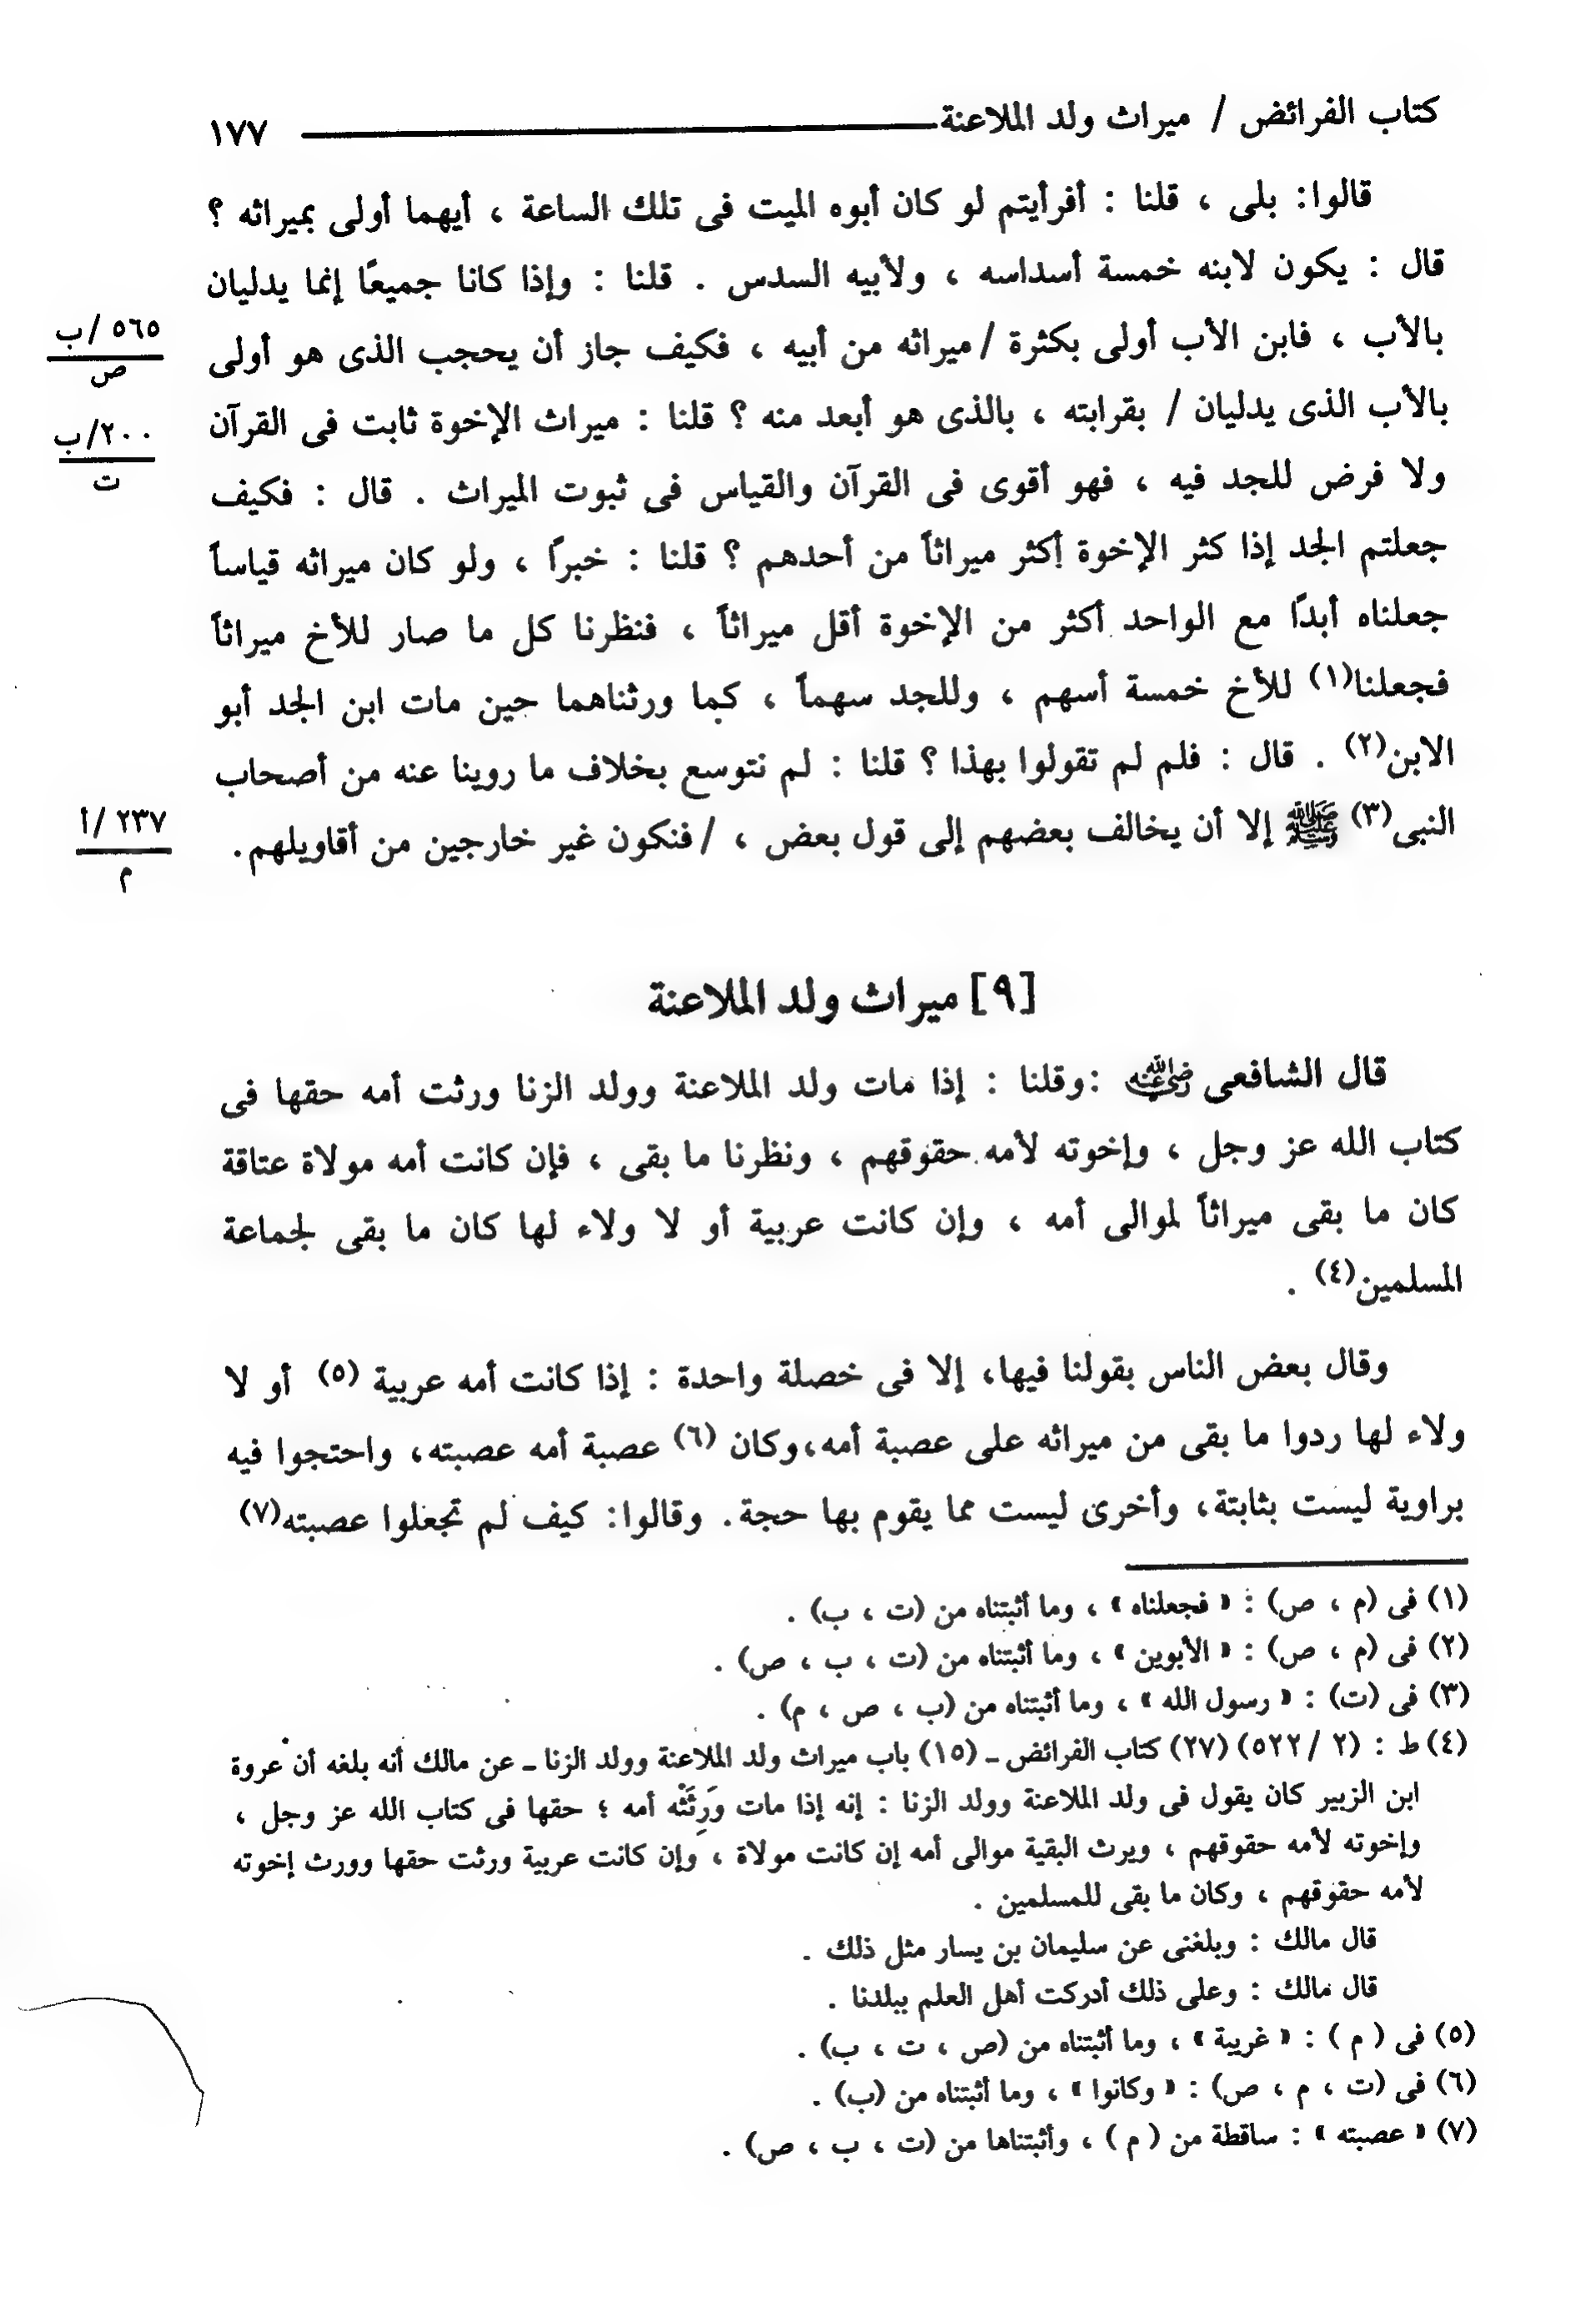 كتاب الفرائض / ميراث ولد الملاعنة ١٧٧
قالوا: بلى ، قلنا : أفرأيتم لو كان أبوه الميت فى تلك الساعة ، أيهما أولى بميراثه ؟
قال : يكون لابنه خمسة أسداسه ، ولأبيه السدس . قلنا : وإذا كانا جميعًا إنما يدليان
بالأب ، فابن الأب أولى بكثرة / ميراثه من أبيه ، فكيف جاز أن يحجب الذى هو أولى
٥٦٥ /ب
ص
بالأب الذى يدليان / بقرابته ، بالذى هو أبعد منه ؟ قلنا : ميراث الإخوة ثابت فى القرآن
٢٠٠/ب
ت
ولا فرض للجد فيه ، فهو أقوى فى القرآن والقياس فى ثبوت الميراث . قال : فكيف
جعلتم الجد إذا كثر الإخوة أكثر ميراثاً من أحدهم ؟ قلنا : خبراً ، ولو كان ميراثه قياساً
جعلناه أبدًا مع الواحد أكثر من الإخوة أقل ميراثاً ، فنظرنا كل ما صار للأخ ميراثاً
فجعلنا(١) للأخ خمسة أسهم ، وللجد سهماً ، كما ورثناهما حين مات ابن الجد أبو
الابن(٢) . قال : فلم لم تقولوا بهذا ؟ قلنا : لم نتوسع بخلاف ما روينا عنه من أصحاب
النبى(٣) ﷺ إلا أن يخالف بعضهم إلى قول بعض ، /فنكون غير خارجين من أقاويلهم.
٢٣٧ /أ
م
[٩] ميراث ولد الملاعنة
قال الشافعى رضي الله عنه :وقلنا : إذا مات ولد الملاعنة وولد الزنا ورثت أمه حقها فى
كتاب الله عز وجل ، وإخوته لأمه حقوقهم ، ونظرنا ما بقى ، فإن كانت أمه مولاة عتاقة
كان ما بقى ميراثاً لموالى أمه ، وإن كانت عربية أو لا ولاء لها كان ما بقى لجماعة
المسلمين(٤) .
وقال بعض الناس بقولنا فيها، إلا فى خصلة واحدة : إذا كانت أمه عربية (٥) أو لا
ولاء لها ردوا ما بقى من ميراثه على عصبة أمه،وكان (٦) عصبة أمه عصبته، واحتجوا فيه
براوية ليست بثابتة، وأخرى ليست مما يقوم بها حجة. وقالوا: كيف لم تجعلوا عصبته(٧)
(١) فى (م ، ص) : « فجعلناه » ، وما أثبتناه من (ت ، ب) .
(٢) فى (م ، ص) : « الأبوين » ، وما أثبتناه من (ت ، ب ، ص) .
(٣) فى (ت) : « رسول الله » ، وما أثبتناه من (ب ، ص ، م) .
(٤) ط : (٢ / ٥٢٢) (٢٧) كتاب الفرائض ـ (١٥) باب ميراث ولد الملاعنة وولد الزنا ـ عن مالك أنه بلغه أن عروة
ابن الزبير كان يقول فى ولد الملاعنة وولد الزنا : إنه إذا مات وَرِثَتْه أمه ؛ حقها فى كتاب الله عز وجل ،
وإخوته لأمه حقوقهم ، ويرث البقية موالى أمه إن كانت مولاة ، وإن كانت عربية ورثت حقها وورث إخوته
لأمه حقوقهم ، وكان ما بقى للمسلمين .
قال مالك : وبلغنى عن سليمان بن يسار مثل ذلك .
قال مالك : وعلى ذلك أدركت أهل العلم ببلدنا .
(٥) فى ( م ) : « غريبة » ، وما أثبتناه من (ص ، ت ، ب) .
(٦) فى (ت ، م ، ص) : « وكانوا » ، وما أثبتناه من (ب) .
(٧) « عصبته » : ساقطة من ( م ) ، وأثبتناها من (ت ، ب ، ص) .